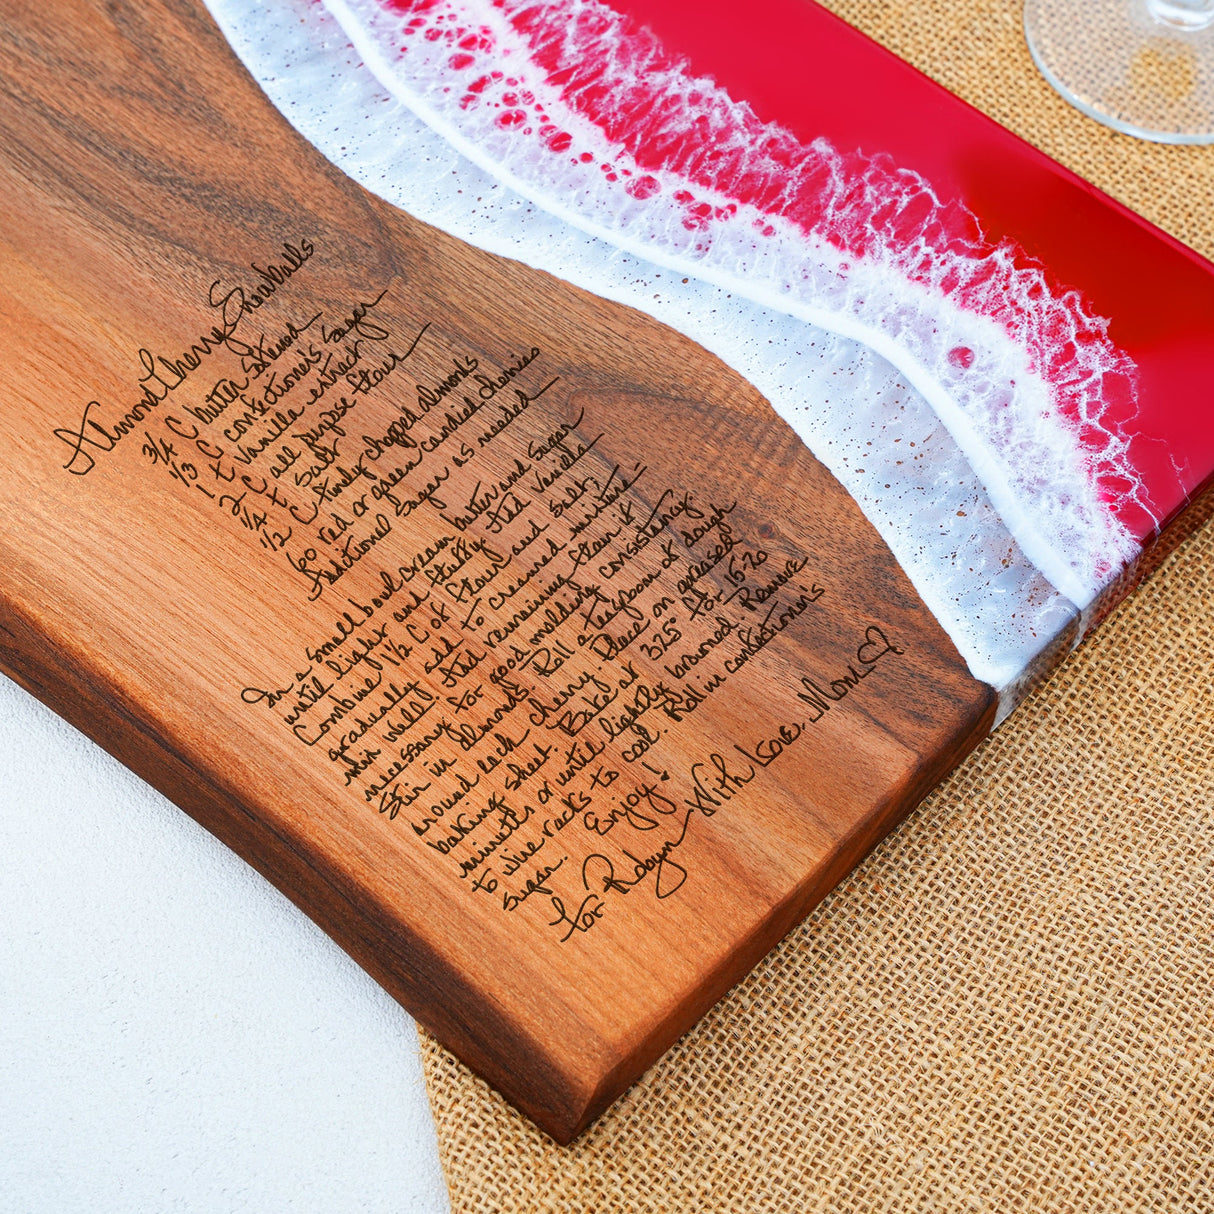 Almond Cherry Snowballs
3/4 C butter softened
1/3 C confectioner's sugar
1 t vanilla extract
2 C all purpose flour
1/4 t salt
1/2 C finely chopped almonds
60 red or green candied cherries
Additional sugar as needed
In a small bowl cream butter and sugar
until light and fluffy. Add vanilla
Combine 1 1/2 C of flour and salt,
gradually add to creamed mixture-
mix well. Add remaining flour if
necessary for good molding consistency.
Stir in almonds. Roll a teaspoon of dough
around each cherry. Place on greased
baking sheet. Bake at 325° for 15-20
minutes or until lightly browned. Remove
to wire racks to cool. Roll in confectioner's
sugar. Enjoy!
for Robyn - With Love, Mom ♡